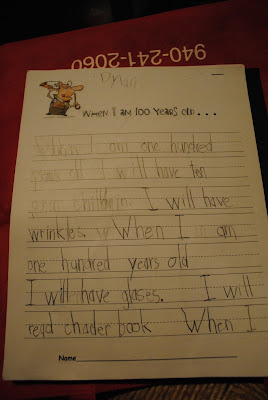 940-241-2060
Dylan
WHEN I AM 100 YEARS OLD...
When I am one hundred
years old I will have ten
gran children. I will have
wrinkles. When I am
one hundred years old
I will have glases. I will
read chader book When I
Name